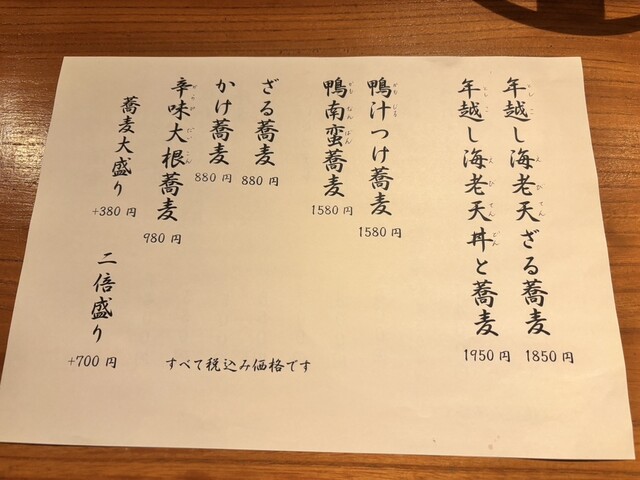 年越し海老天ざる蕎麦
1850円
年越し海老天丼と蕎麦
1950円
鴨汁つけ蕎麦
1580円
鴨南蛮蕎麦
1580円
ざる蕎麦
880円
かけ蕎麦
880円
辛味大根蕎麦
980円
蕎麦大盛り
+380円
二倍盛り
+700円
すべて税込み価格です